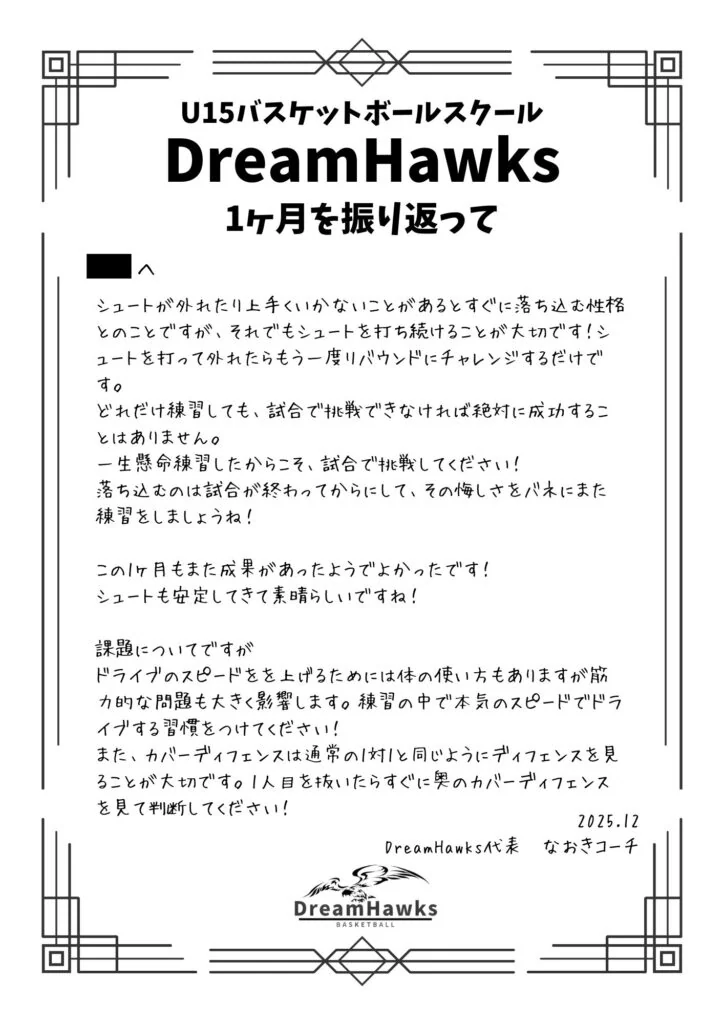 U15バスケットボールスクール
DreamHawks
1ヶ月を振り返って
へ
シュートが外れたり上手くいかないことがあるとすぐに落ち込む性格
とのことですが、それでもシュートを打ち続けることが大切です！シ
ュートを打って外れたらもう一度リバウンドにチャレンジするだけで
す。
どれだけ練習しても、試合で挑戦できなければ絶対に成功するこ
とはありません。
一生懸命練習したからこそ、試合で挑戦してください！
落ち込むのは試合が終わってからにして、その悔しさをバネにまた
練習をしましょうね！
この1ヶ月もまた成果があったようでよかったです！
シュートも安定してきて素晴らしいですね！
課題についてですが
ドライブのスピードをを上げるためには体の使い方もありますが筋
力的な問題も大きく影響します。練習の中で本気のスピードでドラ
イブする習慣をつけてください！
また、カバーディフェンスは通常の1対1と同じようにディフェンスを見
ることが大切です。1人目を抜いたらすぐに奥のカバーディフェンス
を見て判断してください！
2025.12
DreamHawks代表 なおきコーチ
DreamHawks
BASKETBALL